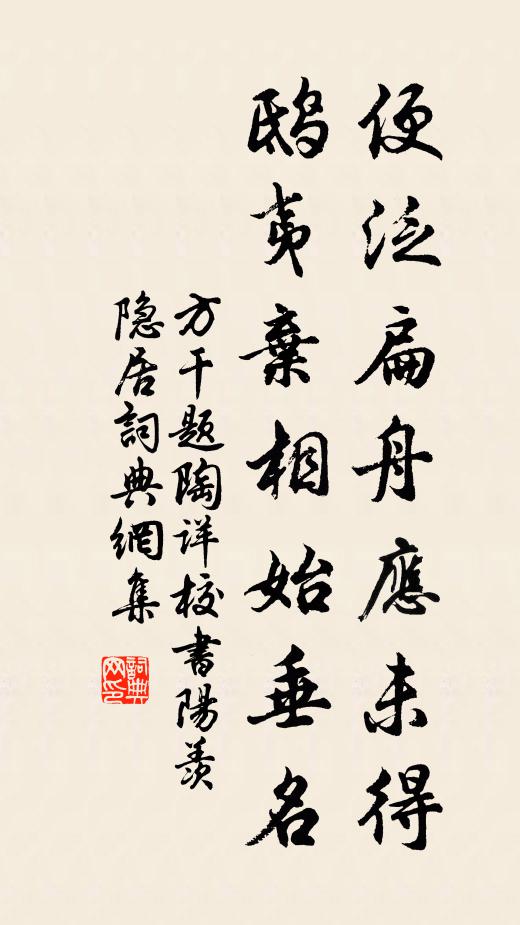 便泛扁舟應未得
鴟夷棄相始垂名
方干题陶详校書陽羨
隐居詞典網集
詞典网印